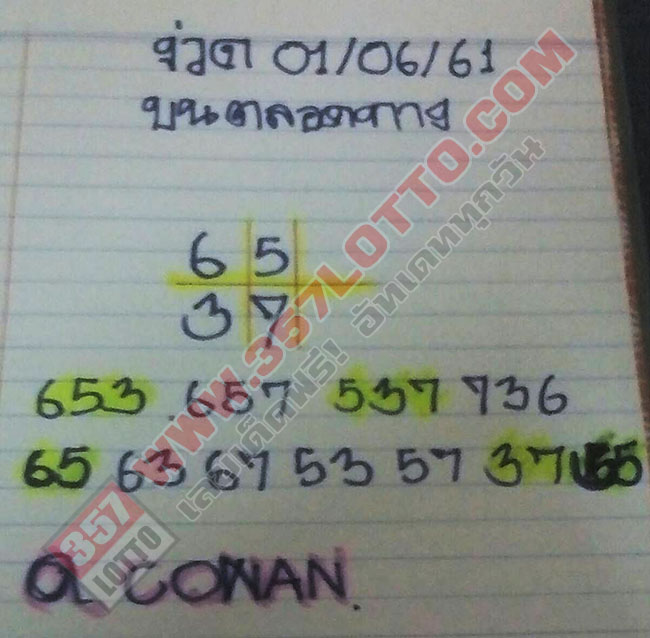 งวด 01/06/61
บนตลอดทาง
6 5
3 7
653 . 657 537 736
65 63 67 53 57 37 55
a COWAN.
WWW.357LOTTO.COM
เลขเด็ดฟรี! อัพเดททุกวัน
357
LOTTO